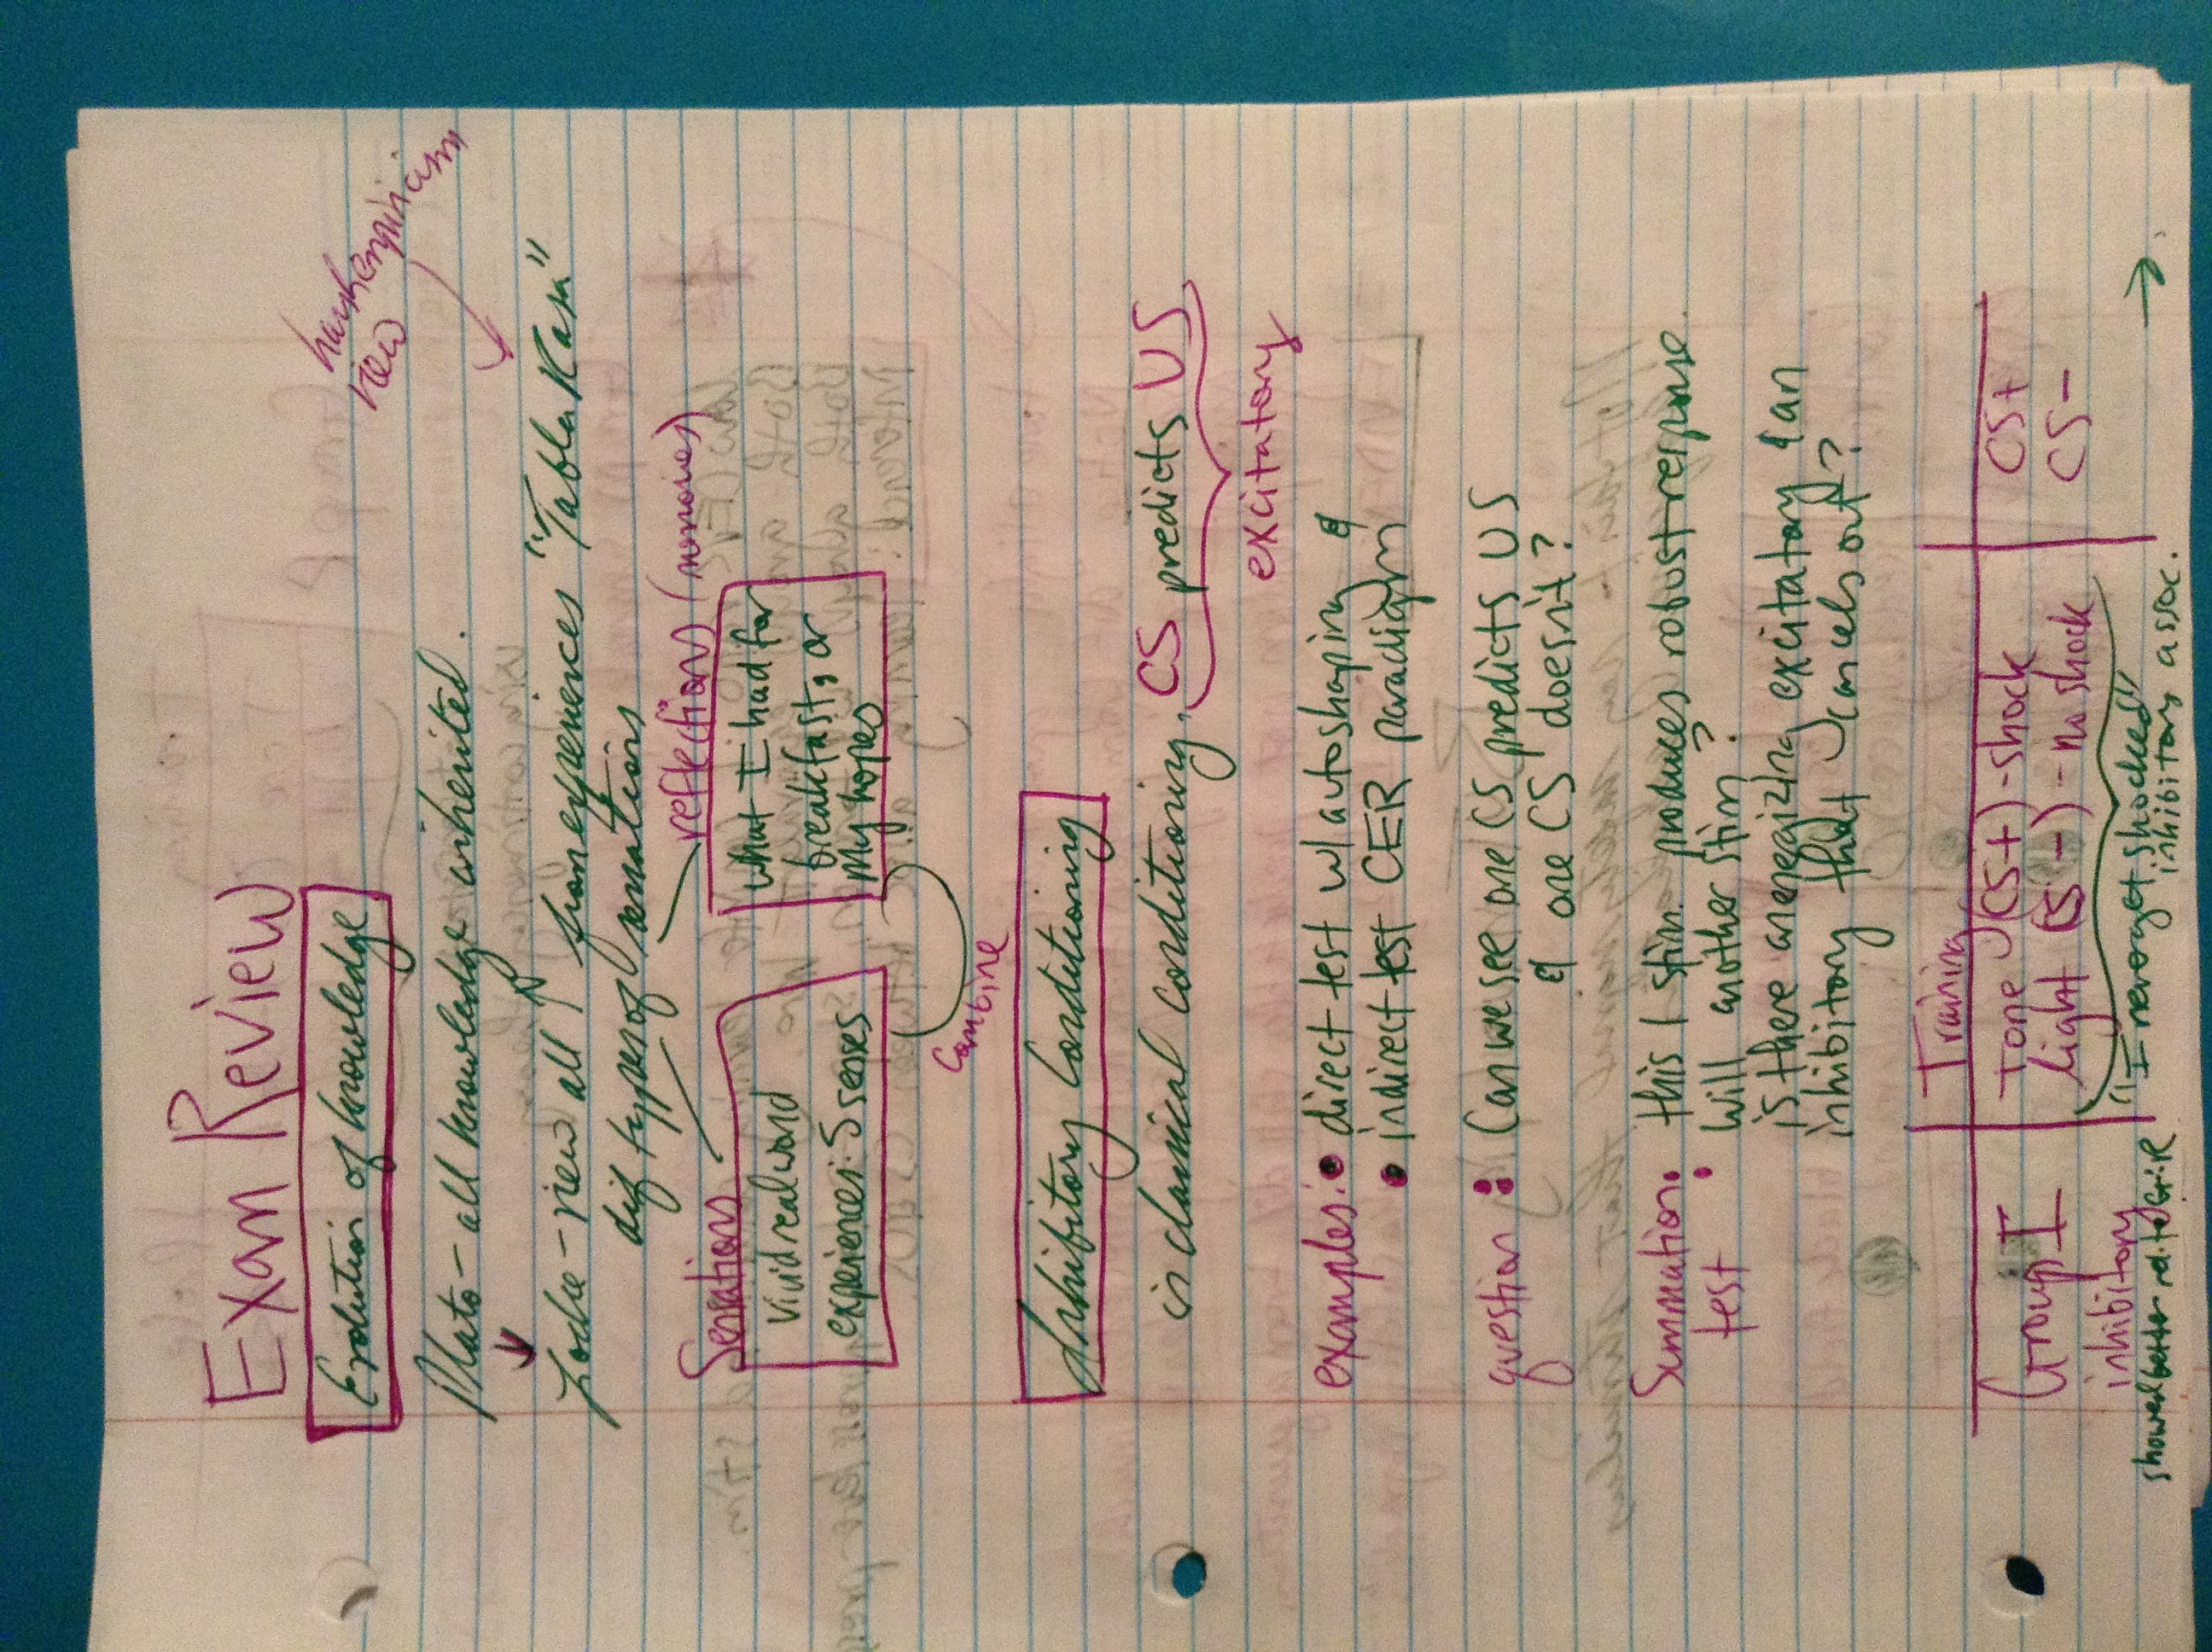 Exam Review
Evolution of knowledge
harsh empiricism
view
Plato - all knowledge inherited.
Locke - view all from experiences "Tabla Rasa"
dif types of sensations
Sensations
reflection (memories)
vivid real world
experiences: 5 senses
what I had for
breakfast, or
my hopes
combine
Inhibitory Conditioning
is classical conditioning, CS predicts US
excitatory
examples: • direct test w/ autoshaping &
• indirect test CER paradigm
question: Can we see one CS predicts US
& one CS doesn't?
Summation test
• this 1 stim. produces robust response.
• will another stim?
is there energizing excitatory & an
inhibitory that cancels out?
Training
Group I Tone (CS+) - shock CS+
inhibitory Light (CS-) - no shock CS-
"I never get shocked"
inhibitory assoc.
showed better rel. to Gr. R